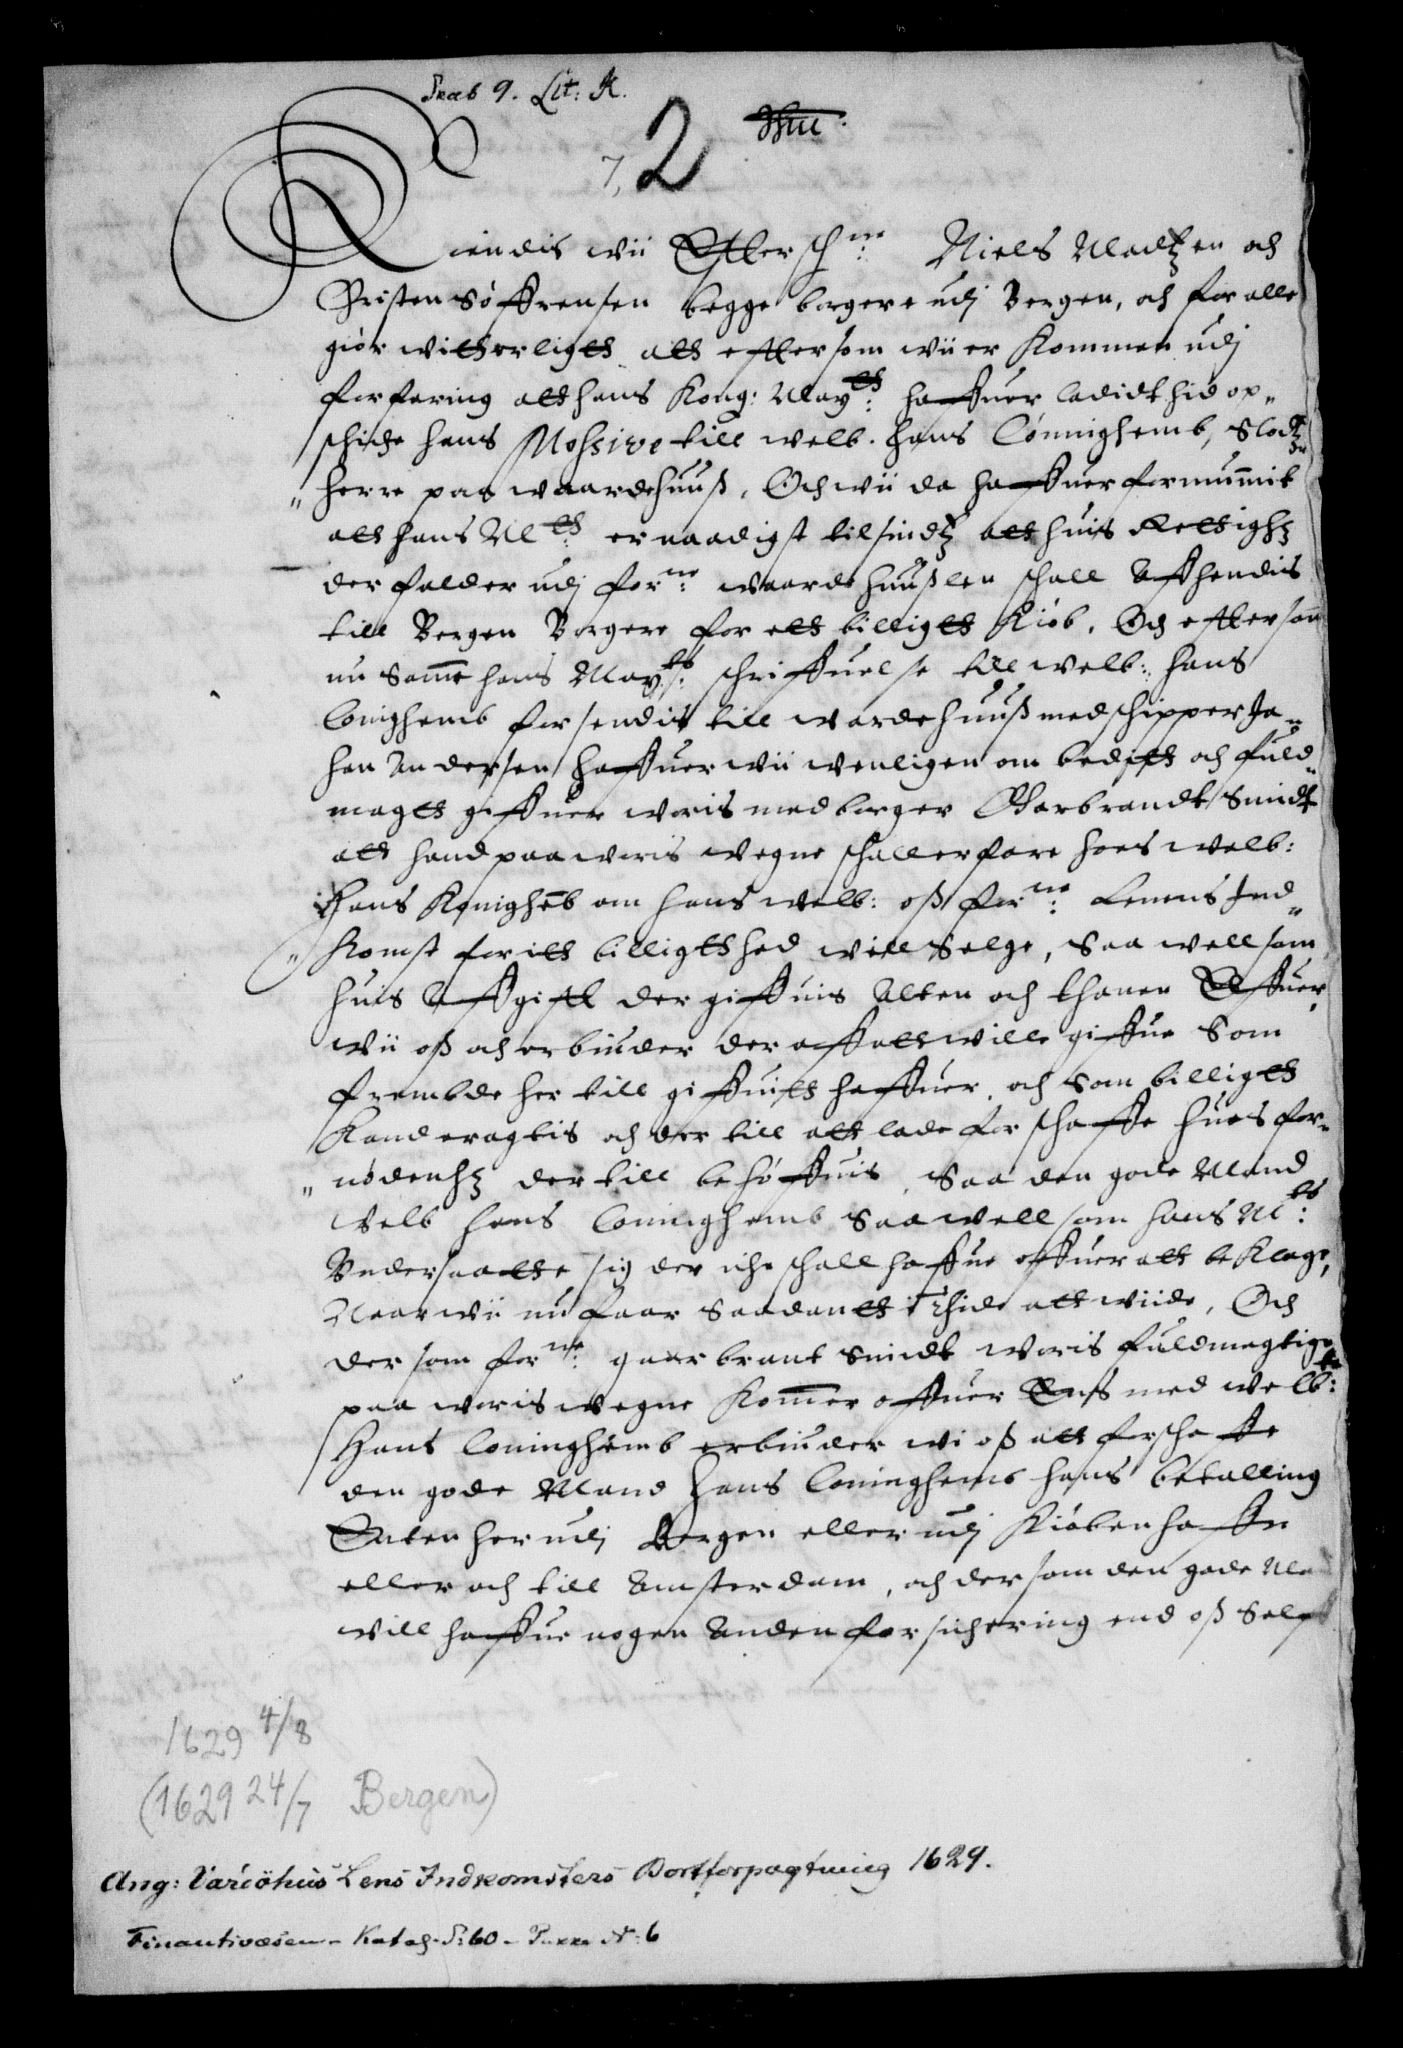 Skab 9. Lit: A.
7, 2
Kiendis wii Effterschne: Niels Madtzen och
Christen Søffrensen begge borgere udj Bergen, och for alle
giør witterligtt att effter som wii er kommen udj
forfaring att hans Kong: Maytt: haffuer ladidt hid op„
schiche hans Missive till welb. Hans Cønninghemb, Slodtz
„ herre paa waardehuuß, Och wii da haffuer fornummit
att hans Mtt: er naadigst tilsindtz att huis Rettighz
der falder udj forne: waardehuußlen schall Affhendis
till Bergen Borgere for ett billigtt Kiøb, Och effter som
nu Samme hans Maytts: schriffuelse till welb: Hans
Coninghemb forsendis till wardehuuß med schipper Jo„
han Andersen haffuer wii wenligen ombedit och fuld„
magtt giffuer woris medborger Garbrandt Smidt
att hand paa woris wegne schall erfare hoes welb:
Hans Koninghemb om hans welb: oß forne: Lenens Ind„
„ komst for itt billigtt hed will Selge, Saa well som
huis Affgifft der giffuis Alten och thanen
wii oß och erbiuder der aff att wille giffue Som
frembde her till giffuitt haffuer, och Som billigtt
Kand eragtis och der till att lade forschaffe hues for„
„ nødenhz der till behøffuis, Saa den gode Mand
Velb Hans Coninghemb Saa well som hans Mtts:
Undersaatte sig der iche schall haffue offuer att beklage,
Naar wii nu faar Saadantt i thide att wiide, Och
dersom forne: garbrant Smidt woris fuldmegtige
paa woris wegne Kommer offuer Ens med welb:
Hans Coninghemb erbiuder wi oß att forschaffe
den gode Mand Hans Coninghemb hans betalling
Enten her udj Bergen eller udj Kiøbenhaffn
eller och till Amsterdam, och dersom den gode
will haffue nogen Anden forsichering end oß Selff
1629 4/8
(1629 24/7 Bergen)
Ang: Vardöhus Lens Indkomsters Bortforpagtning 1629.
Finantsvæsen - Katal. S. 60 - Pakke No: 6